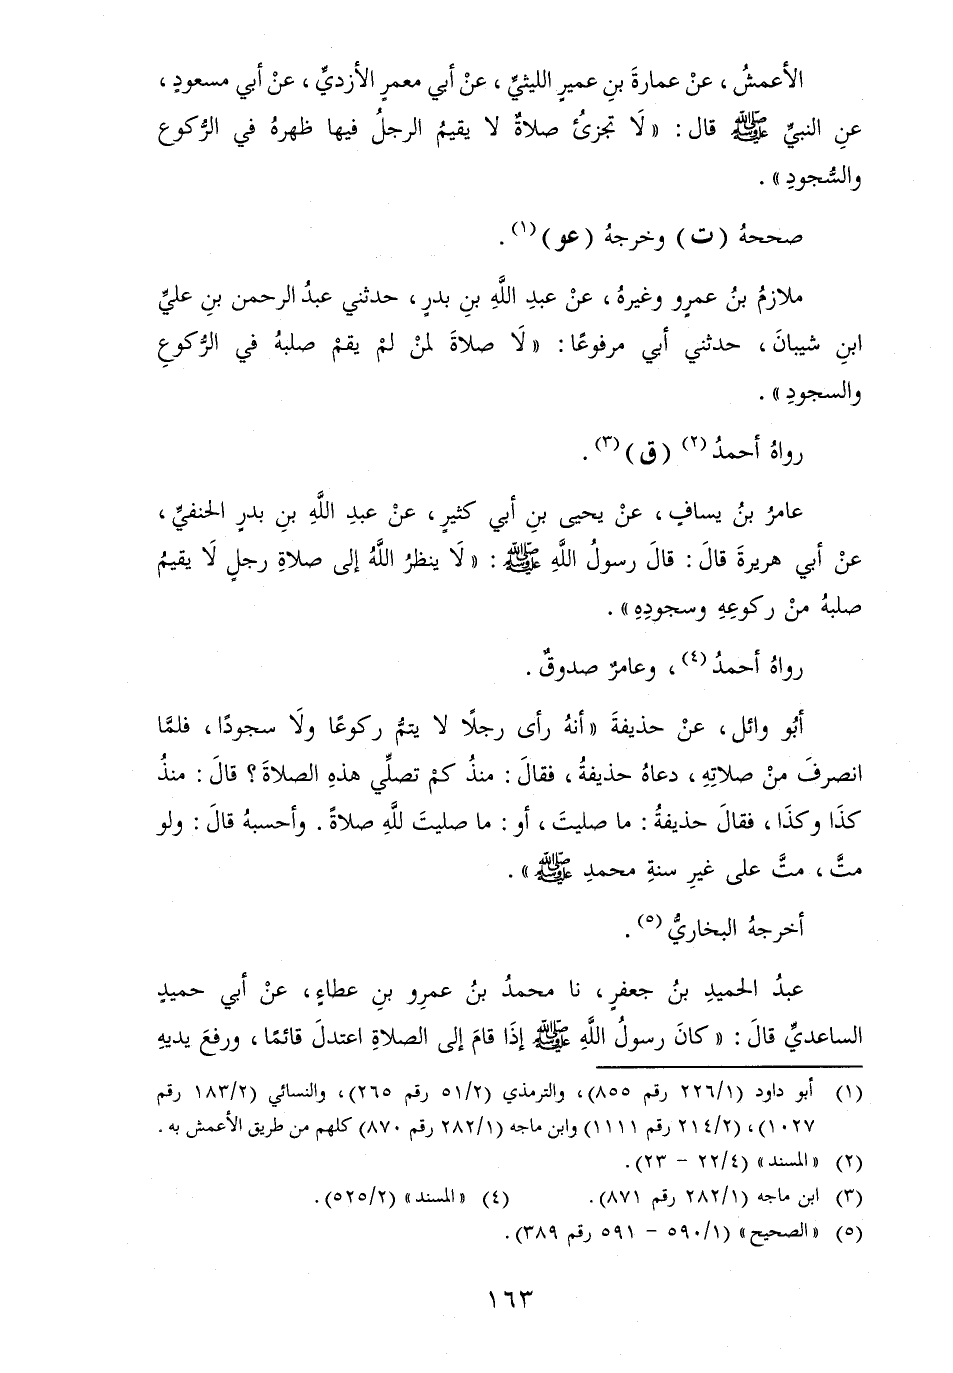 الأعمشُ ، عنْ عمارةَ بنِ عميرٍ الليثيِّ ، عنْ أبي معمرٍ الأزديِّ ، عنْ أبي مسعودٍ ،
عنِ النبيِّ ﷺ قال : « لَا تجزئُ صلاةٌ لا يقيمُ الرجلُ فيها ظهرهُ في الرُّكوع
والسُّجودِ » .
صححهُ (ت) وخرجهُ (عو)(١) .
ملازمُ بنُ عمرٍو وغيرهُ ، عنْ عبدِ اللَّهِ بنِ بدرٍ ، حدثني عبدُ الرحمن بنِ عليِّ
ابنِ شيبانَ ، حدثني أبي مرفوعًا : « لَا صلاةَ لمنْ لمْ يقمْ صلبهُ في الرُّكوعِ
والسجودِ » .
رواهُ أحمدُ(٢) (ق)(٣) .
عامرُ بنُ يسافٍ ، عنْ يحيى بنِ أبي كثيرٍ ، عنْ عبدِ اللَّهِ بنِ بدرٍ الحنفيِّ ،
عنْ أبي هريرةَ قالَ : قالَ رسولُ اللَّهِ ﷺ : « لَا ينظرُ اللَّهُ إلى صلاةِ رجلٍ لَا يقيمُ
صلبهُ منْ ركوعِهِ وسجودِهِ » .
رواهُ أحمدُ(٤) ، وعامرٌ صدوقٌ .
أبُو وائل ، عنْ حذيفةَ « أنهُ رأى رجلًا لا يتمُّ ركوعًا ولَا سجودًا ، فلمَّا
انصرفَ منْ صلاتِهِ ، دعاهُ حذيفةُ ، فقالَ : منذُ كمْ تصلِّي هذهِ الصلاةَ ؟ قالَ : منذُ
كذَا وكذَا ، فقالَ حذيفةُ : ما صليتَ ، أو : ما صليتَ للَّهِ صلاةً . وأحسبهُ قالَ : ولو
متَّ ، متَّ على غيرِ سنةِ محمدٍ ﷺ » .
أخرجهُ البخاريُّ(٥) .
عبدُ الحميدِ بنُ جعفرٍ ، نا محمدُ بنُ عمرِو بنِ عطاءٍ ، عنْ أبي حميدٍ
الساعديِّ قالَ : « كانَ رسولُ اللَّهِ ﷺ إذَا قامَ إلى الصلاةِ اعتدلَ قائمًا ، ورفعَ يديهِ
(١) أبو داود (٢٢٦/١ رقم ٨٥٥)، والترمذي (٥١/٢ رقم ٢٦٥)، والنسائي (١٨٣/٢ رقم
١٠٢٧)، (٢١٤/٢ رقم ١١١١) وابن ماجه (٢٨٢/١ رقم ٨٧٠) كلهم من طريق الأعمش به .
(٢) « المسند » (٢٢/٤ - ٢٣).
(٣) ابن ماجه (٢٨٢/١ رقم ٨٧١). (٤) « المسند » (٥٢٥/٢).
(٥) « الصحيح » (٥٩٠/١ - ٥٩١ رقم ٣٨٩).
١٦٣